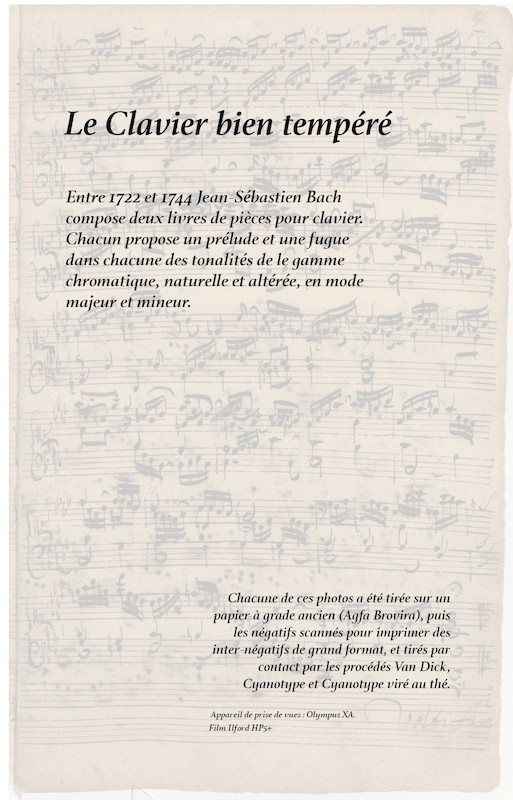 Le Clavier bien tempéré
Entre 1722 et 1744 Jean-Sébastien Bach
compose deux livres de pièces pour clavier.
Chacun propose un prélude et une fugue
dans chacune des tonalités de le gamme
chromatique, naturelle et altérée, en mode
majeur et mineur.
Chacune de ces photos a été tirée sur un
papier à grade ancien (Agfa Brovira), puis
les négatifs scannés pour imprimer des
inter-négatifs de grand format, et tirés par
contact par les procédés Van Dick,
Cyanotype et Cyanotype viré au thé.
Appareil de prise de vues : Olympus XA.
Film Ilford HP5+